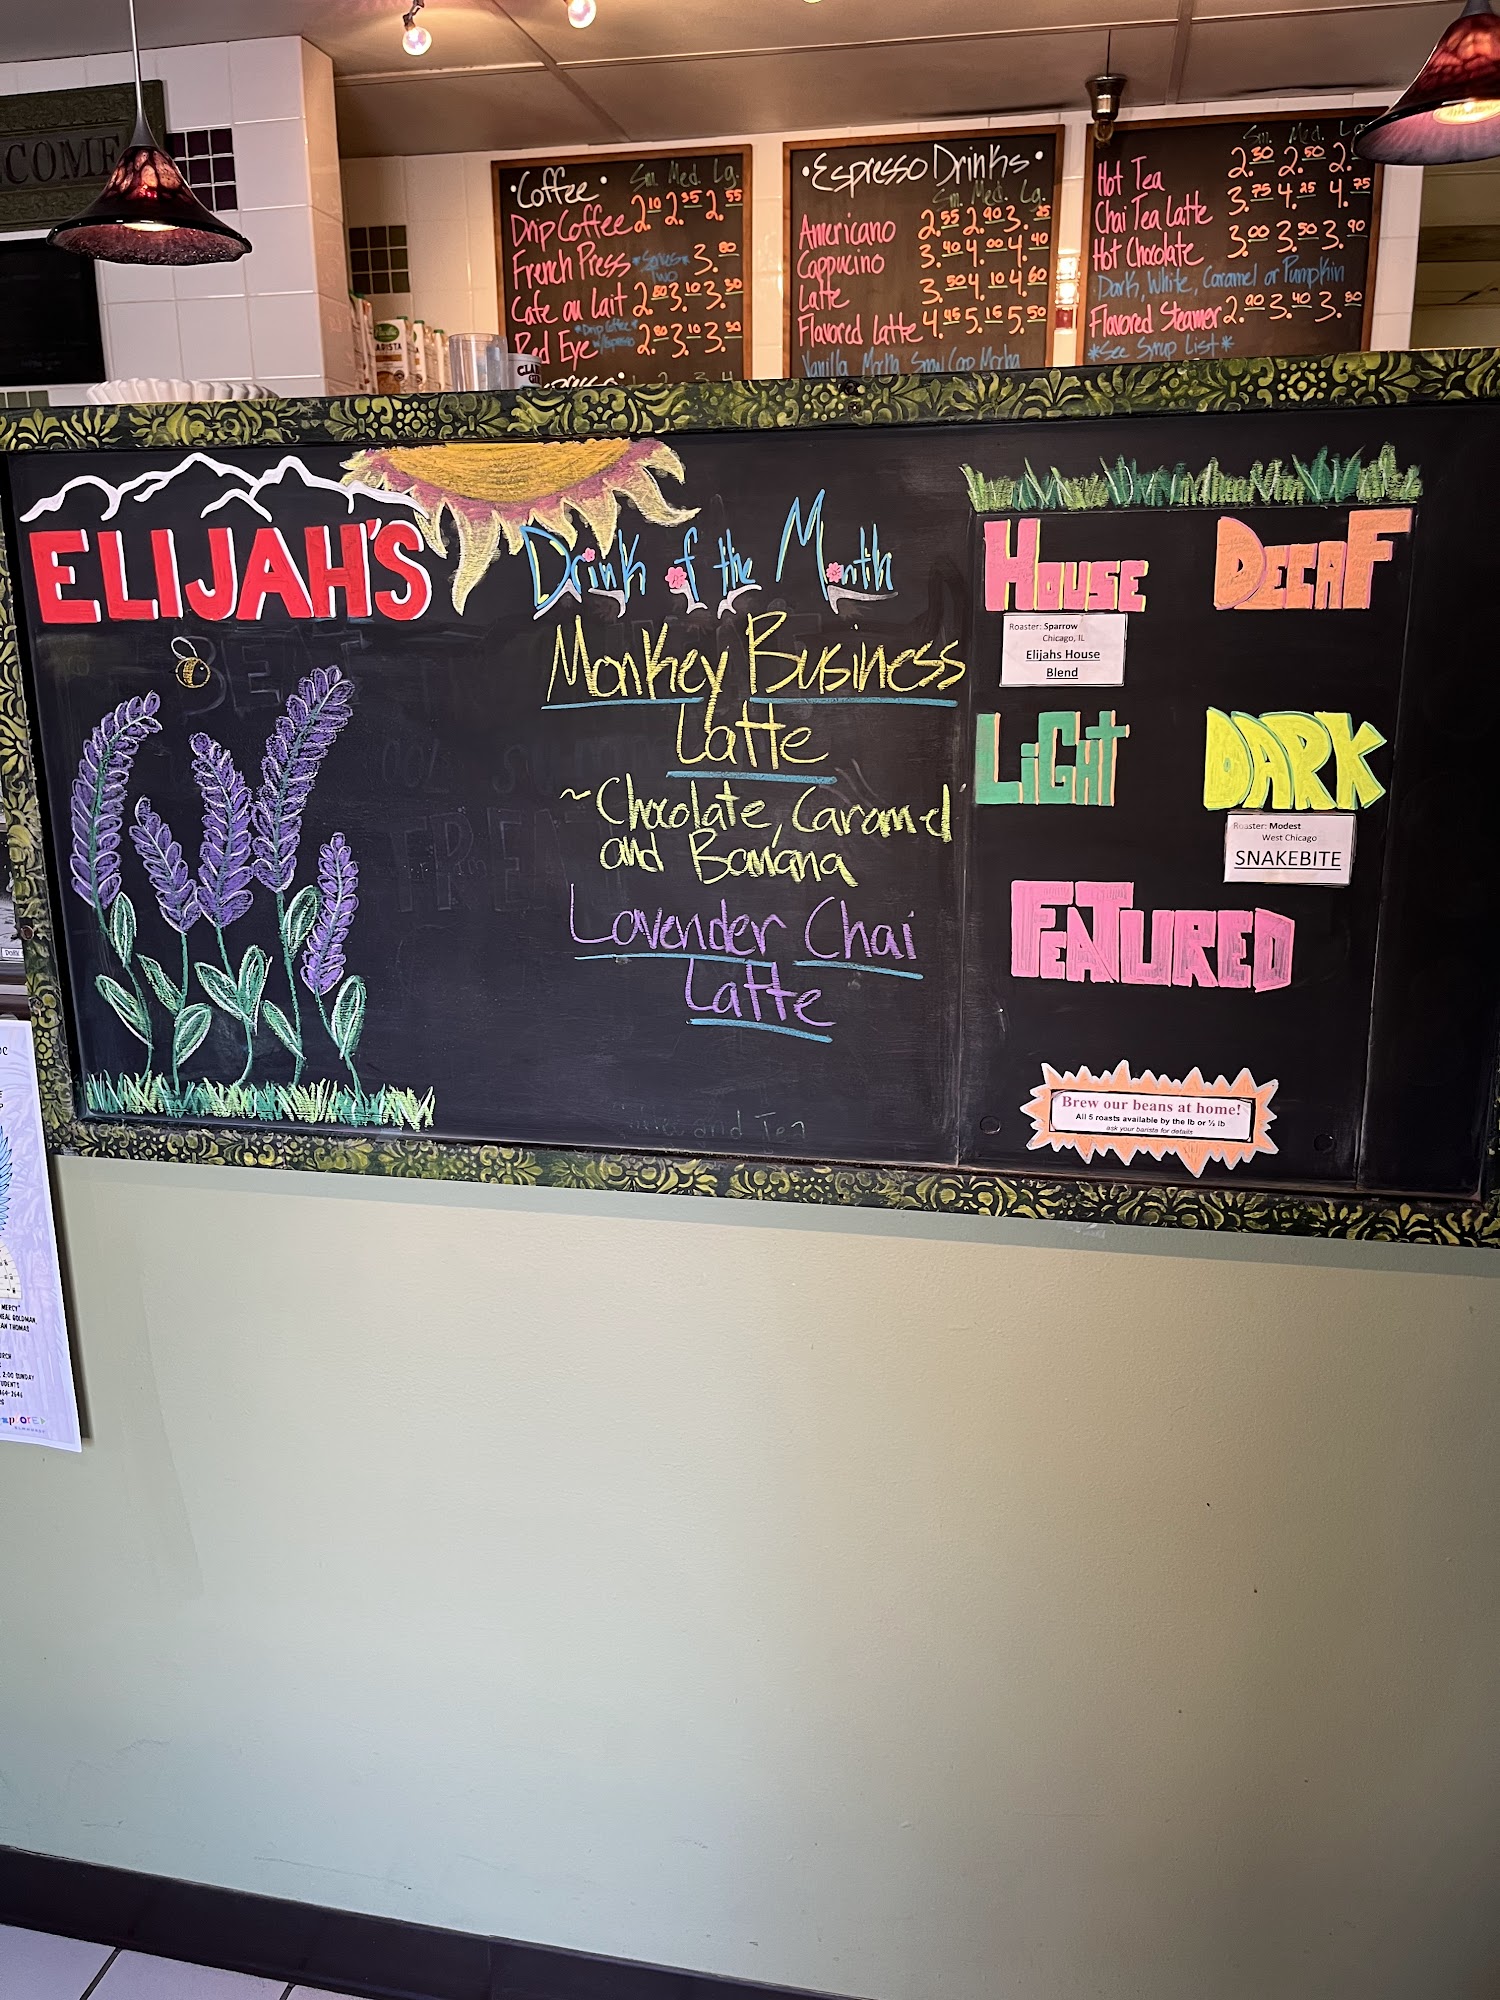 COME
•Coffee•
Sm. Med. Lg.
Drip Coffee 2.10 2.35 2.55
French Press *Serves Two* 3.80
Cafe au Lait 2.80 3.10 3.50
Red Eye *Drip Coffee* w/Espresso 2.80 3.10 3.50
•Espresso Drinks•
Sm. Med. Lg.
Americano 2.55 2.90 3.25
Cappucino 3.40 4.00 4.40
Latte 3.50 4.10 4.60
Flavored Latte 4.45 5.15 5.50
Vanilla, Mocha, Snow Cap Mocha
Sm. Med. Lg
Hot Tea 2.30 2.50 2.
Chai Tea Latte 3.75 4.25 4.75
Hot Chocolate 3.00 3.50 3.90
Dark, White, Caramel or Pumpkin
Flavored Steamer 2.90 3.40 3.80
*See Syrup List*
ELIJAH'S
Drink of the Month
Monkey Business
Latte
~Chocolate, Caramel
and Banana
Lavender Chai
Latte
and Tea
HOUSE
Roaster: Sparrow
Chicago, IL
Elijahs House
Blend
DECAF
LiGHT
DARK
Roaster: Modest
West Chicago
SNAKEBITE
FEATURED
Brew our beans at home!
All 5 roasts available by the lb or ½ lb
ask your barista for details
MERCY"
NEAL GOLDMAN,
AN THOMAS
2:00 SUNDAY